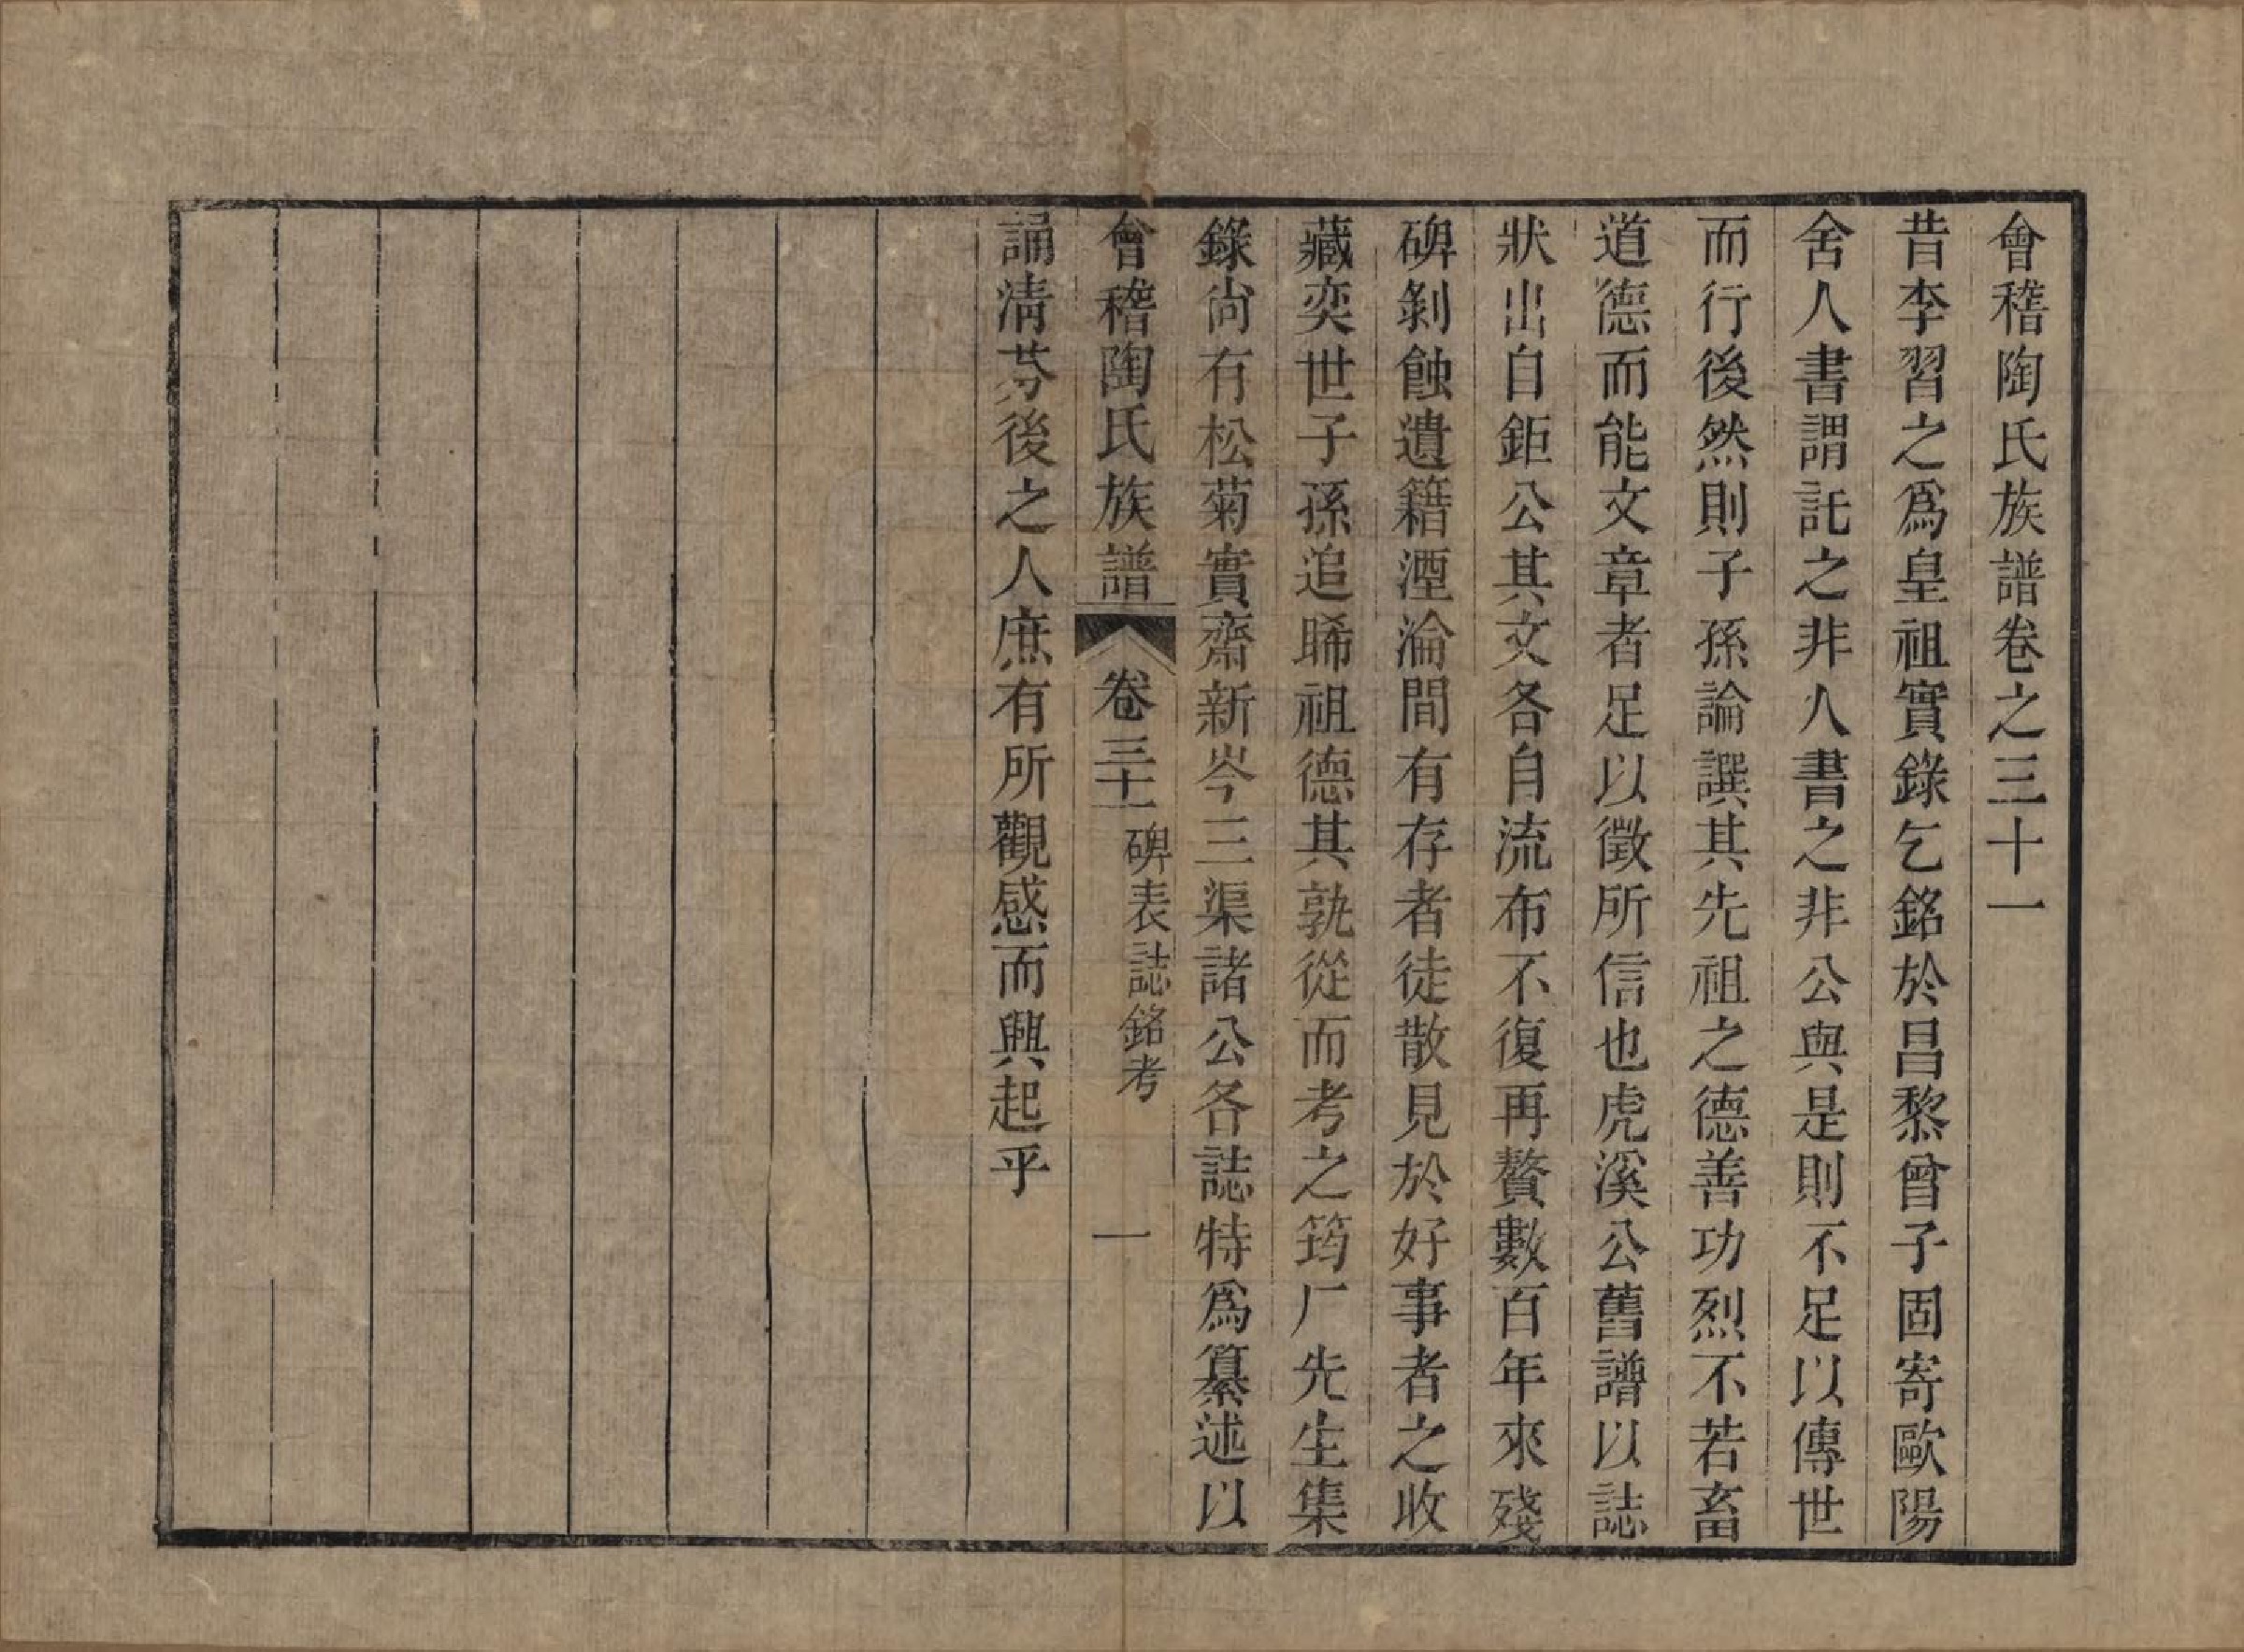 會稽陶氏族譜卷之三十一
昔李習之爲皇祖實錄乞銘於昌黎曾子固寄歐陽
舍人書謂託之非人書之非公與是則不足以傳世
而行後然則子孫論譔其先祖之德善功烈不若畜
道德而能文章者足以徵所信也虎溪公舊譜以誌
狀出自鉅公其文各自流布不復再贅數百年來殘
碑剝蝕遺籍湮淪間有存者徒散見於好事者之收
藏奕世子孫追晞祖德其孰從而考之筠厂先生集
錄尙有松菊實齋新岑三渠諸公各誌特爲纂述以
會稽陶氏族譜 卷三十一 碑表誌銘考 一
誦淸芬後之人庶有所觀感而興起乎